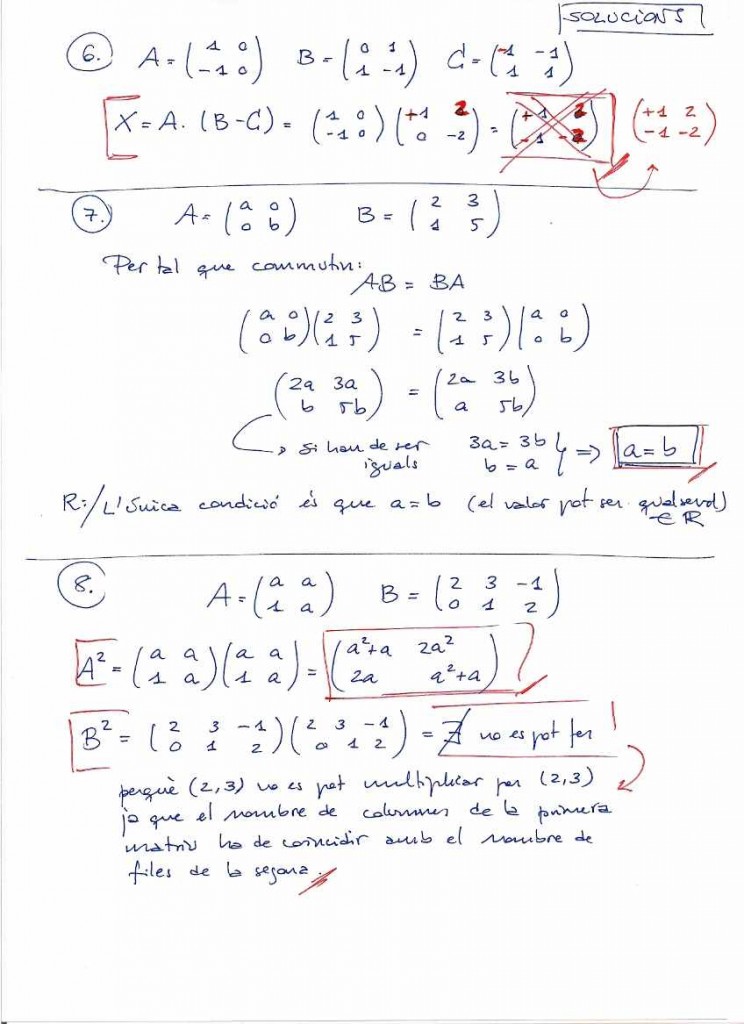 SOLUCIONS
6. A = (1 0 / -1 0) B = (0 1 / 1 -1) C = (-1 -1 / 1 1)
X = A · (B - C) = (1 0 / -1 0) (+1 2 / 0 -2) = (+1 2 / -1 -2) (+1 2 / -1 -2)
7. A = (a 0 / 0 b) B = (2 3 / 1 5)
Per tal que commutin:
AB = BA
(a 0 / 0 b) (2 3 / 1 5) = (2 3 / 1 5) (a 0 / 0 b)
(2a 3a / b 5b) = (2a 3b / a 5b)
→ si han de ser iguals 3a = 3b / b = a } => a = b
R:/ L'única condició és que a = b (el valor pot ser qualsevol) ∈ ℝ
8. A = (a a / 1 a) B = (2 3 -1 / 0 1 2)
A² = (a a / 1 a) (a a / 1 a) = (a²+a 2a² / 2a a²+a)
B² = (2 3 -1 / 0 1 2) (2 3 -1 / 0 1 2) = ∄ no es pot fer
perquè (2,3) no es pot multiplicar per (2,3)
ja que el nombre de columnes de la primera
matriu ha de coincidir amb el nombre de
files de la segona.